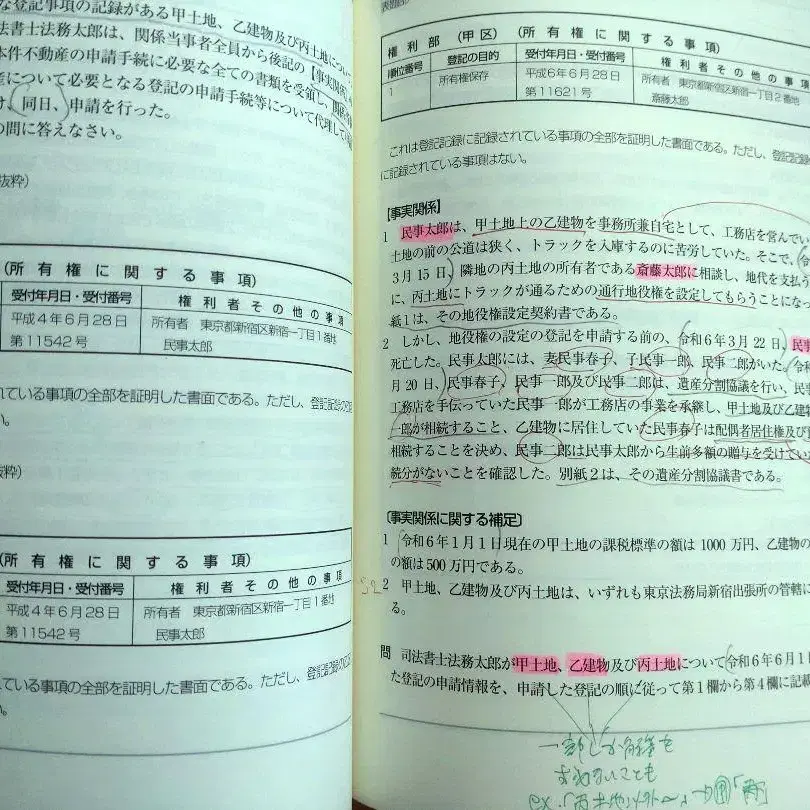 な登記事項の記録がある甲土地、乙建物及び丙土地につい
法書士法務太郎は、関係当事者全員から後記の【事実関
本件不動産の申請手続に必要な全ての書類を受領し、
産について必要となる登記の申請手続等について代理して
け、同日、申請を行った。
の問に答えなさい。
抜粋）
（所有権に関する事項）
受付年月日・受付番号 権利者その他の事項
平成４年６月28日 所有者 東京都新宿区新宿一丁目１番地
第11542号 民事太郎
れている事項の全部を証明した書面である。ただし、登記記録の
い。
抜粋）
（所有権に関する事項）
受付年月日・受付番号 権利者その他の事項
平成４年６月28日 所有者 東京都新宿区新宿一丁目１番地
第11542号 民事太郎
ている事項の全部を証明した書面である。ただし、登記記録の
い。
権利部（甲区）（所有権に関する事項）
順位番号 登記の目的 受付年月日・受付番号 権利者その他の事項
1 所有権保存 平成６年６月28日 所有者 東京都新宿区新宿一丁目２番地
第11621号 斎藤太郎
これは登記記録に記録されている事項の全部を証明した書面である。ただし、登記記録
に記録されている事項はない。
【事実関係】
1 民事太郎は、甲土地上の乙建物を事務所兼自宅として、工務店を営んでい
土地の前の公道は狭く、トラックを入庫するのに苦労していた。そこで、令
3月15日、隣地の丙土地の所有者である斎藤太郎に相談し、地代を支払う
に、丙土地にトラックが通るための通行地役権を設定してもらうことにな
紙１は、その地役権設定契約書である。
2 しかし、地役権の設定の登記を申請する前の、令和６年３月22日、民事
死亡した。民事太郎には、妻民事春子、子民事一郎、民事二郎がいた。令和
月20日、民事春子、民事一郎及び民事二郎は、遺産分割協議を行い、民
工務店を手伝っていた民事一郎が工務店の事業を承継し、甲土地及び乙建
一郎が相続すること、乙建物に居住していた民事春子は配偶者居住権及び
相続することを決め、民事二郎は民事太郎から生前多額の贈与を受けてい
続分がないことを確認した。別紙２は、その遺産分割協議書である。
〔事実関係に関する補足〕
1 令和６年１月１日現在の甲土地の課税標準の額は1000万円、乙建物の
の額は500万円である。
2 甲土地、乙建物及び丙土地は、いずれも東京法務局新宿出張所の管轄に
る。
問 司法書士法務太郎が甲土地、乙建物及び丙土地について令和６年６月１
た登記の申請情報を、申請した登記の順に従って第１欄から第４欄に記載
一部しか解答を
求めないことも
ex.「丙土地以外〜」